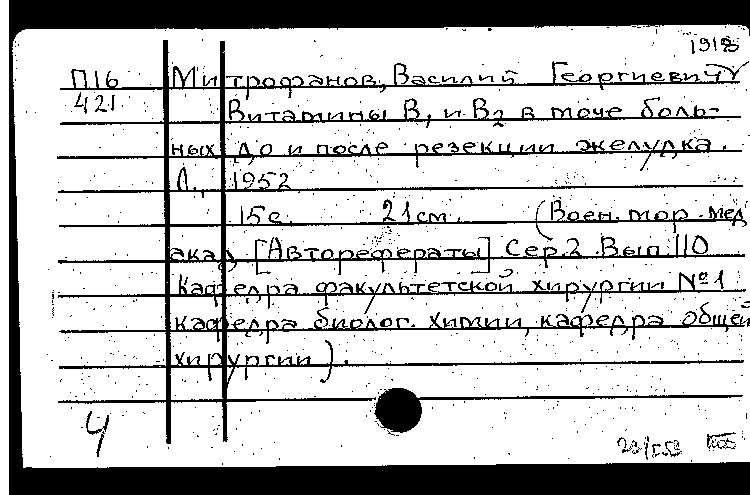 1918
П16 Митрофанов, Василий Георгиевич
421 Витамины В1 и В2 в моче боль-
ных до и после резекции желудка.
Л., 1952
15с. 21см. (Воен. мор. мед
акад. [Авторефераты] Сер.2 Вып.110
Кафедра факультетской хирургии №1
кафедра биолог. химии, кафедра общей
хирургии).
Ч